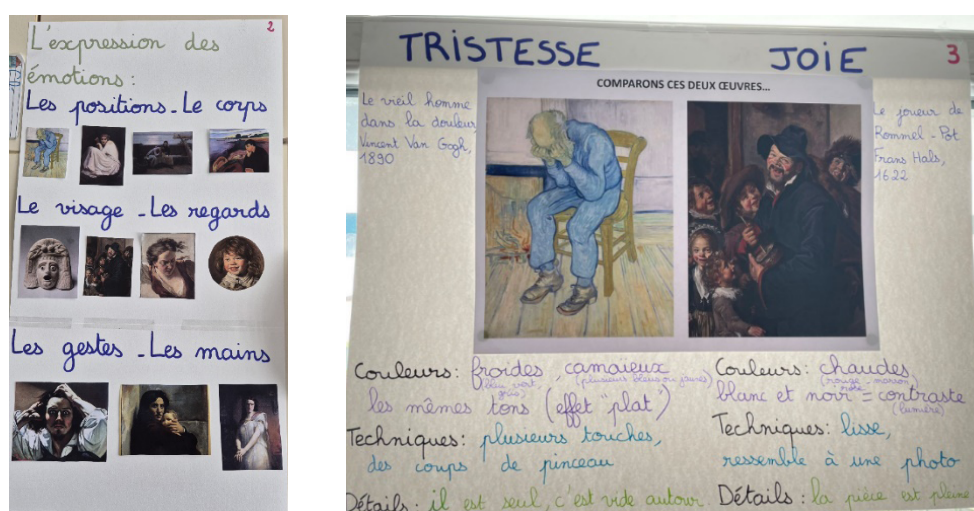 2
L'expression des
émotions :
Les positions - Le corps
Le visage - Les regards
Les gestes - Les mains
TRISTESSE
JOIE
3
COMPARONS CES DEUX ŒUVRES...
Le vieil homme
dans la douleur,
Vincent Van Gogh,
1890
Le joueur de
Rommel-Pot
Frans Hals,
1622
Couleurs : froides, camaïeux
(bleu vert gris) (plusieurs bleus ou jaunes)
les mêmes tons (effet "plat")
Techniques : plusieurs touches,
des coups de pinceau
Détails : il est seul, c'est vide autour
Couleurs : chaudes
(rouge - marron
blanc et noir = contraste
(lumière)
Techniques : lisse,
ressemble à une photo
Détails : la pièce est pleine